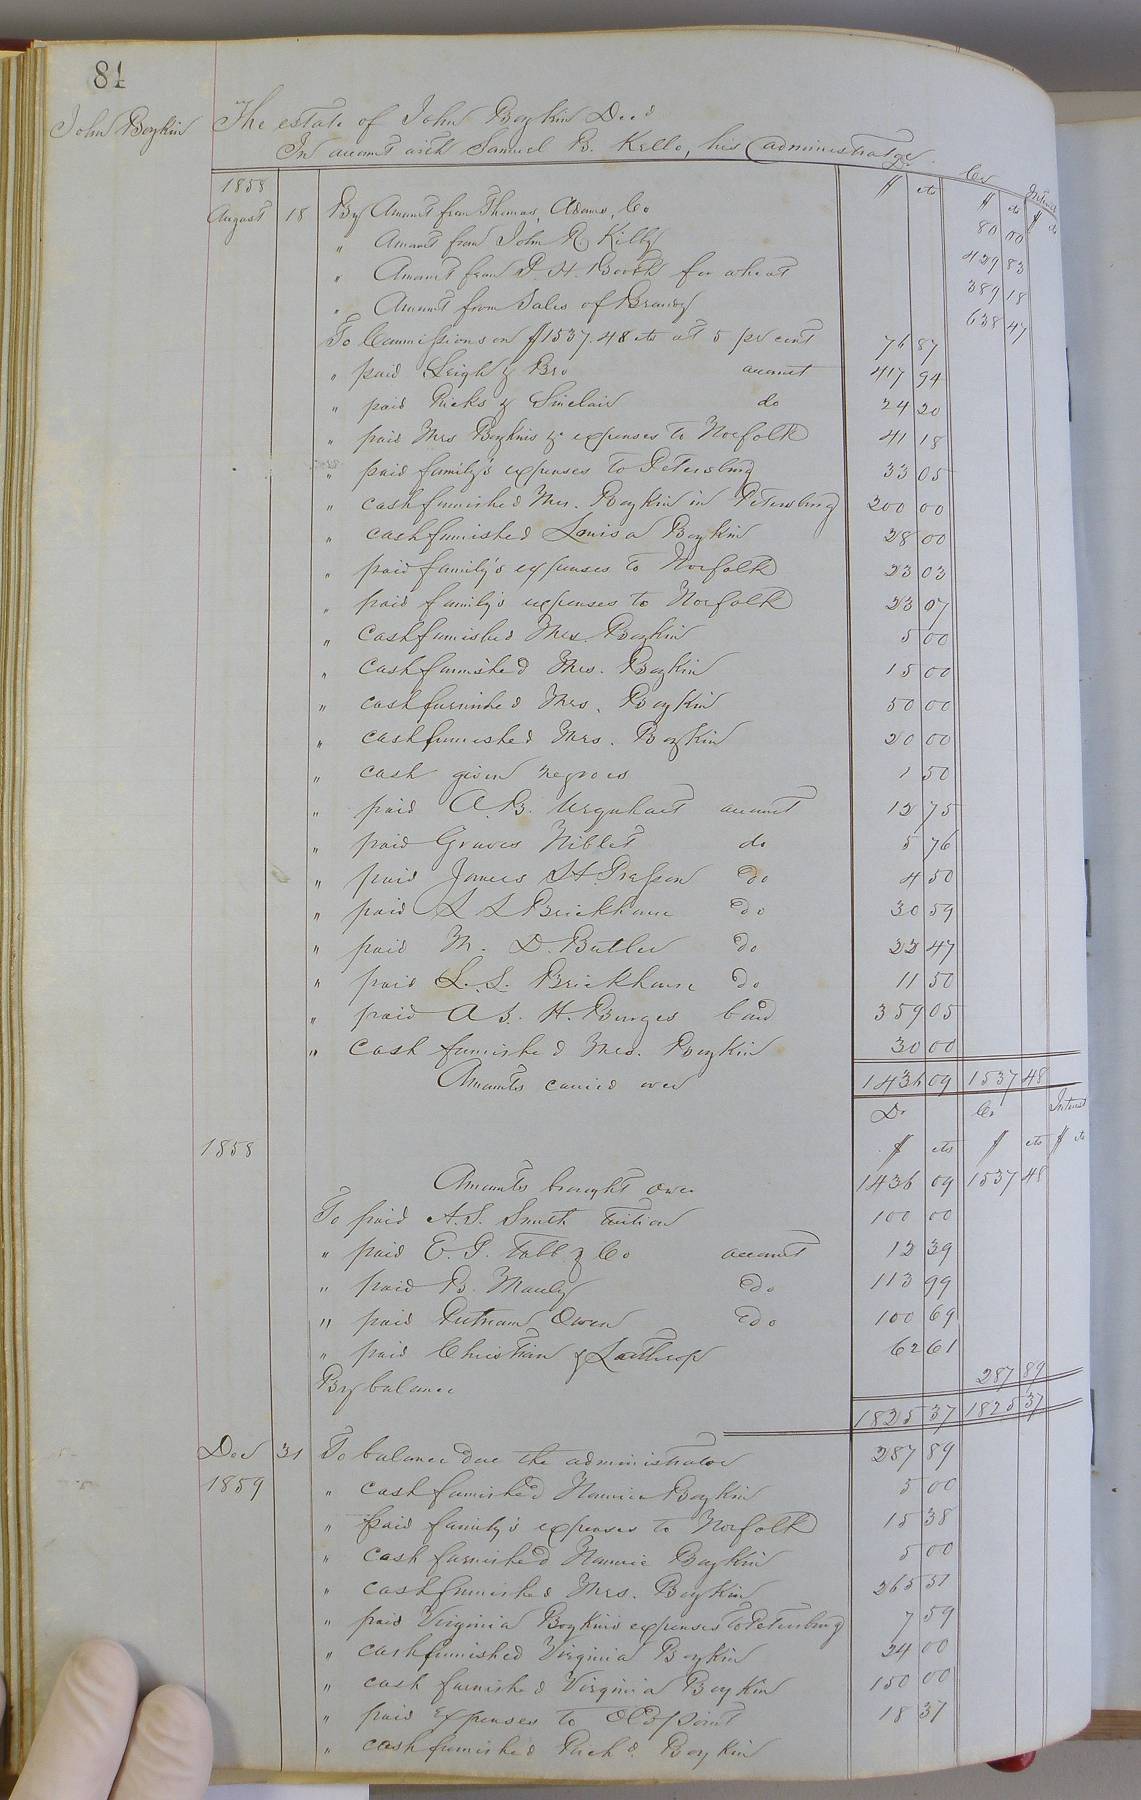 84
John Boykin
The estate of John Boykin Dec'd
In account with Samuel B. Kello, his administrator.
Cr Interest
$ cts $ cts $ cts
1858
August 18 By Amount from Thomas, Adams, Co 80 00
" Amount from John R. Kilby 429 83
" Amount from P. H. Booth for wheat 389 18
" Amount from Sales of Brandy 638 47
To Commissions on $1537.48 cts at 5 per cent 76 87
" paid Leigh & Bro account 417 94
" paid Ricks & Sinclair do 24 20
" paid Mrs Boykins & expenses to Norfolk 41 18
" paid family's expenses to Petersburg 33 05
" cash furnished Mrs. Boykin in Petersburg 200 00
" cash furnished Louisa Boykin 28 00
" paid family's expenses to Norfolk 23 03
" paid family's expenses to Norfolk 23 07
" cash furnished Mrs. Boykin 5 00
" cash furnished Mrs. Boykin 15 00
" cash furnished Mrs. Boykin 50 00
" cash furnished Mrs. Boykin 20 00
" cash given negroes 1 50
" paid A. B. Urquhart account 12 75
" paid Graves Niblet do 5 76
" paid James H. Presson do 4 50
" paid L L Brickhouse do 30 59
" paid M. D. Butler do 22 47
" paid L. L. Brickhouse do 11 50
" paid A. B. H. Burges bond 359 05
" cash furnished Mrs. Boykin 30 00
Amounts carried over 1436 09 1537 48
Dr Cr Interest
1858 $ cts $ cts $ cts
Amounts brought over 1436 09 1537 48
To paid A. S. Smith tuition 100 00
" paid E. G. Tabb & Co account 12 39
" paid B. Manly do 113 99
" paid Putnam Owen do 100 69
" paid Christian & Lathrop 62 61
By balance 287 89
1825 37 1825 37
Dec 31 To balance due the administrator 287 89
1859 " cash furnished Nannie Boykin 5 00
" paid family's expenses to Norfolk 15 38
" cash furnished Nannie Boykin 5 00
" cash furnished Mrs. Boykin 265 51
" paid Virginia Boykins expenses to Petersburg 7 59
" cash furnished Virginia Boykin 24 00
" cash furnished Virginia Boykin 150 00
" paid Expenses to Old Point 18 37
" cash furnished Richd. Boykin